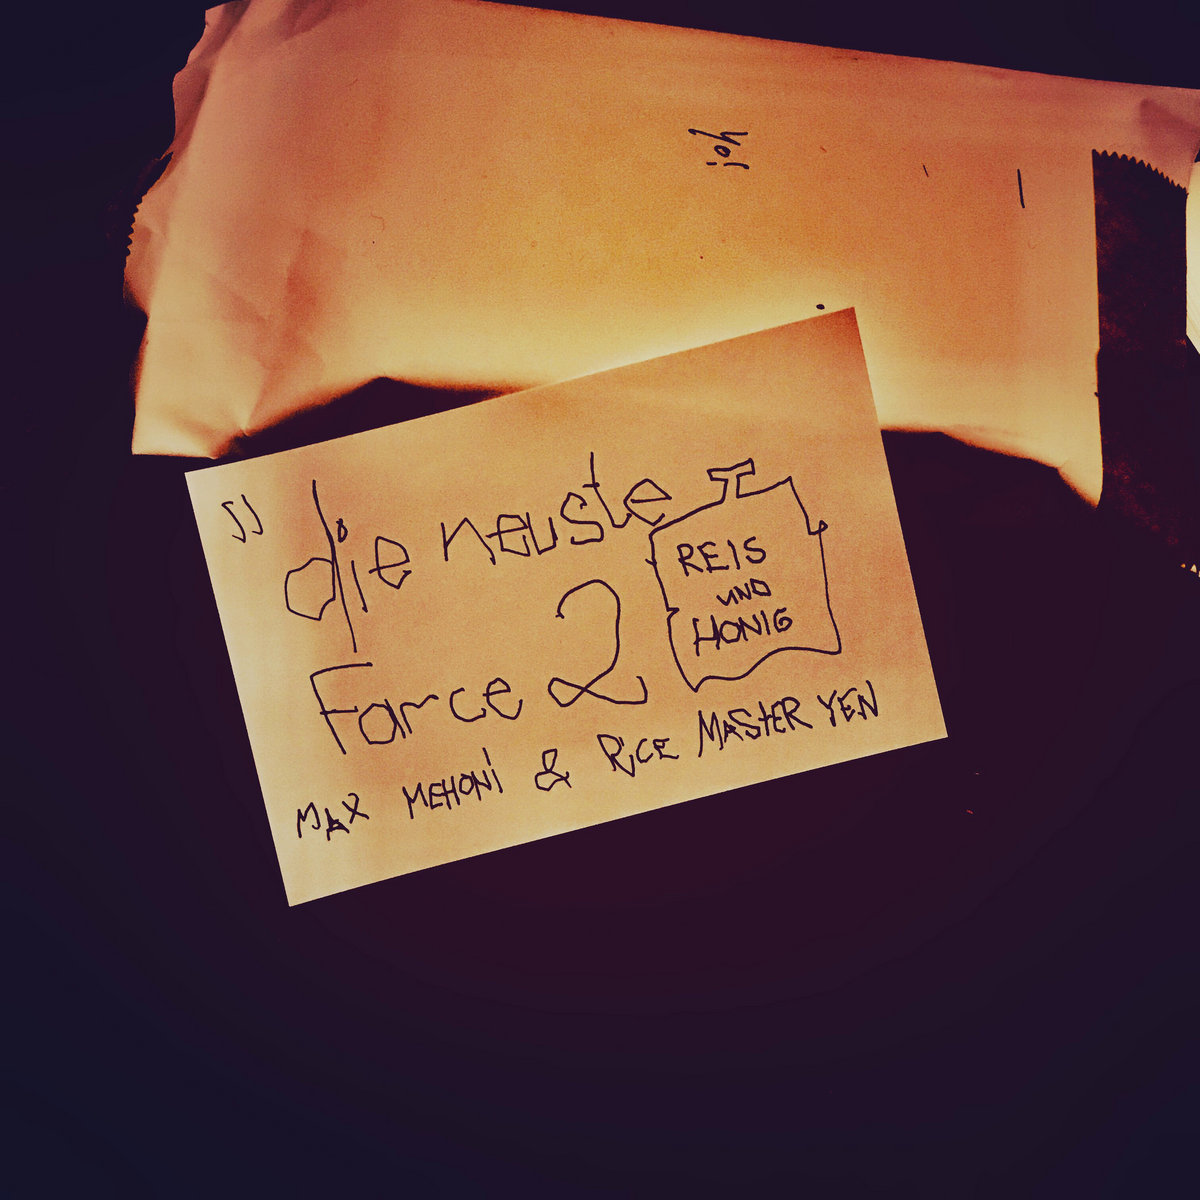 yo!
„ die neuste
Farce 2
REIS
UND
HONIG
MAX MEHONI & RICE MASTER YEN